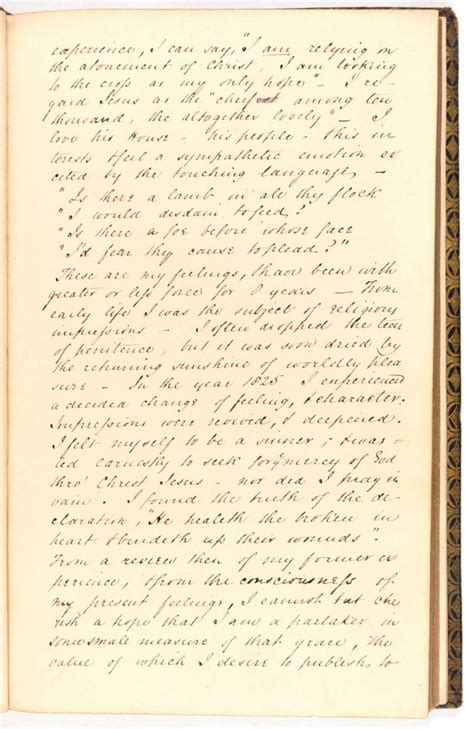 experience, I can say, "I am relying on
the atonement of Christ, I am looking
to the cross as my only hope" - I re-
gard Jesus as the "cheifest among ten
thousand, the altogether lovely" - I
love his House - his people - his in
terests & feel a sympathetic emotion ex
cited by the touching language, -
"Is there a lamb in all thy flock
"I would disdain to feed?
"Is there a foe before whose face
"I'd fear thy cause to plead?"
These are my feelings, & have been with
greater or less force for 8 years - From
early life I was the subject of religious
impressions - I often dropped the tear
of penitence, but it was soon dried by
the returning sunshine of worldly plea
sure - In the year 1825 I experienced
a decided change of feeling, & character.
Impressions were revived, & deepened.
I felt myself to be a sinner, & was
ted earnestly to seek forgv mercy of God
thro' Christ Jesus - nor did I pray in
vain. I found the truth of the de-
claration, "He healeth the broken in
heart & bindeth up their wounds".
From a review then of my former ex
perience, & from the consciousness of
my present feelings, I cannot but che
rish a hope that I am a partaker in
some small measure of that grace, the
value of which I desire to publish, to